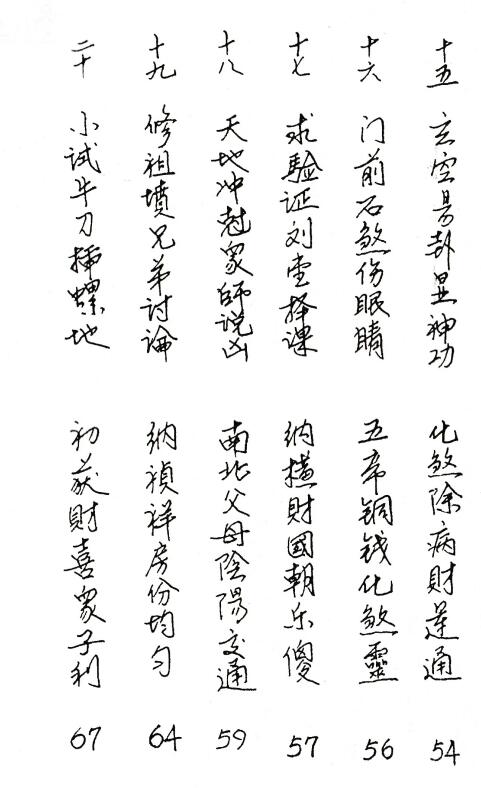 十五 玄空易卦显神功 化煞除病財運通 54
十六 门前石煞伤眼睛 五帝铜钱化煞靈 56
十七 求驗证刘堂择课 纳橫財國朝乐傻 57
十八 天地冲尅眾師说凶 南北父母陰陽交通 59
十九 修祖墳兄弟讨論 纳禎祥房份均匀 64
二十 小试牛刀插螺地 初获財喜眾子利 67